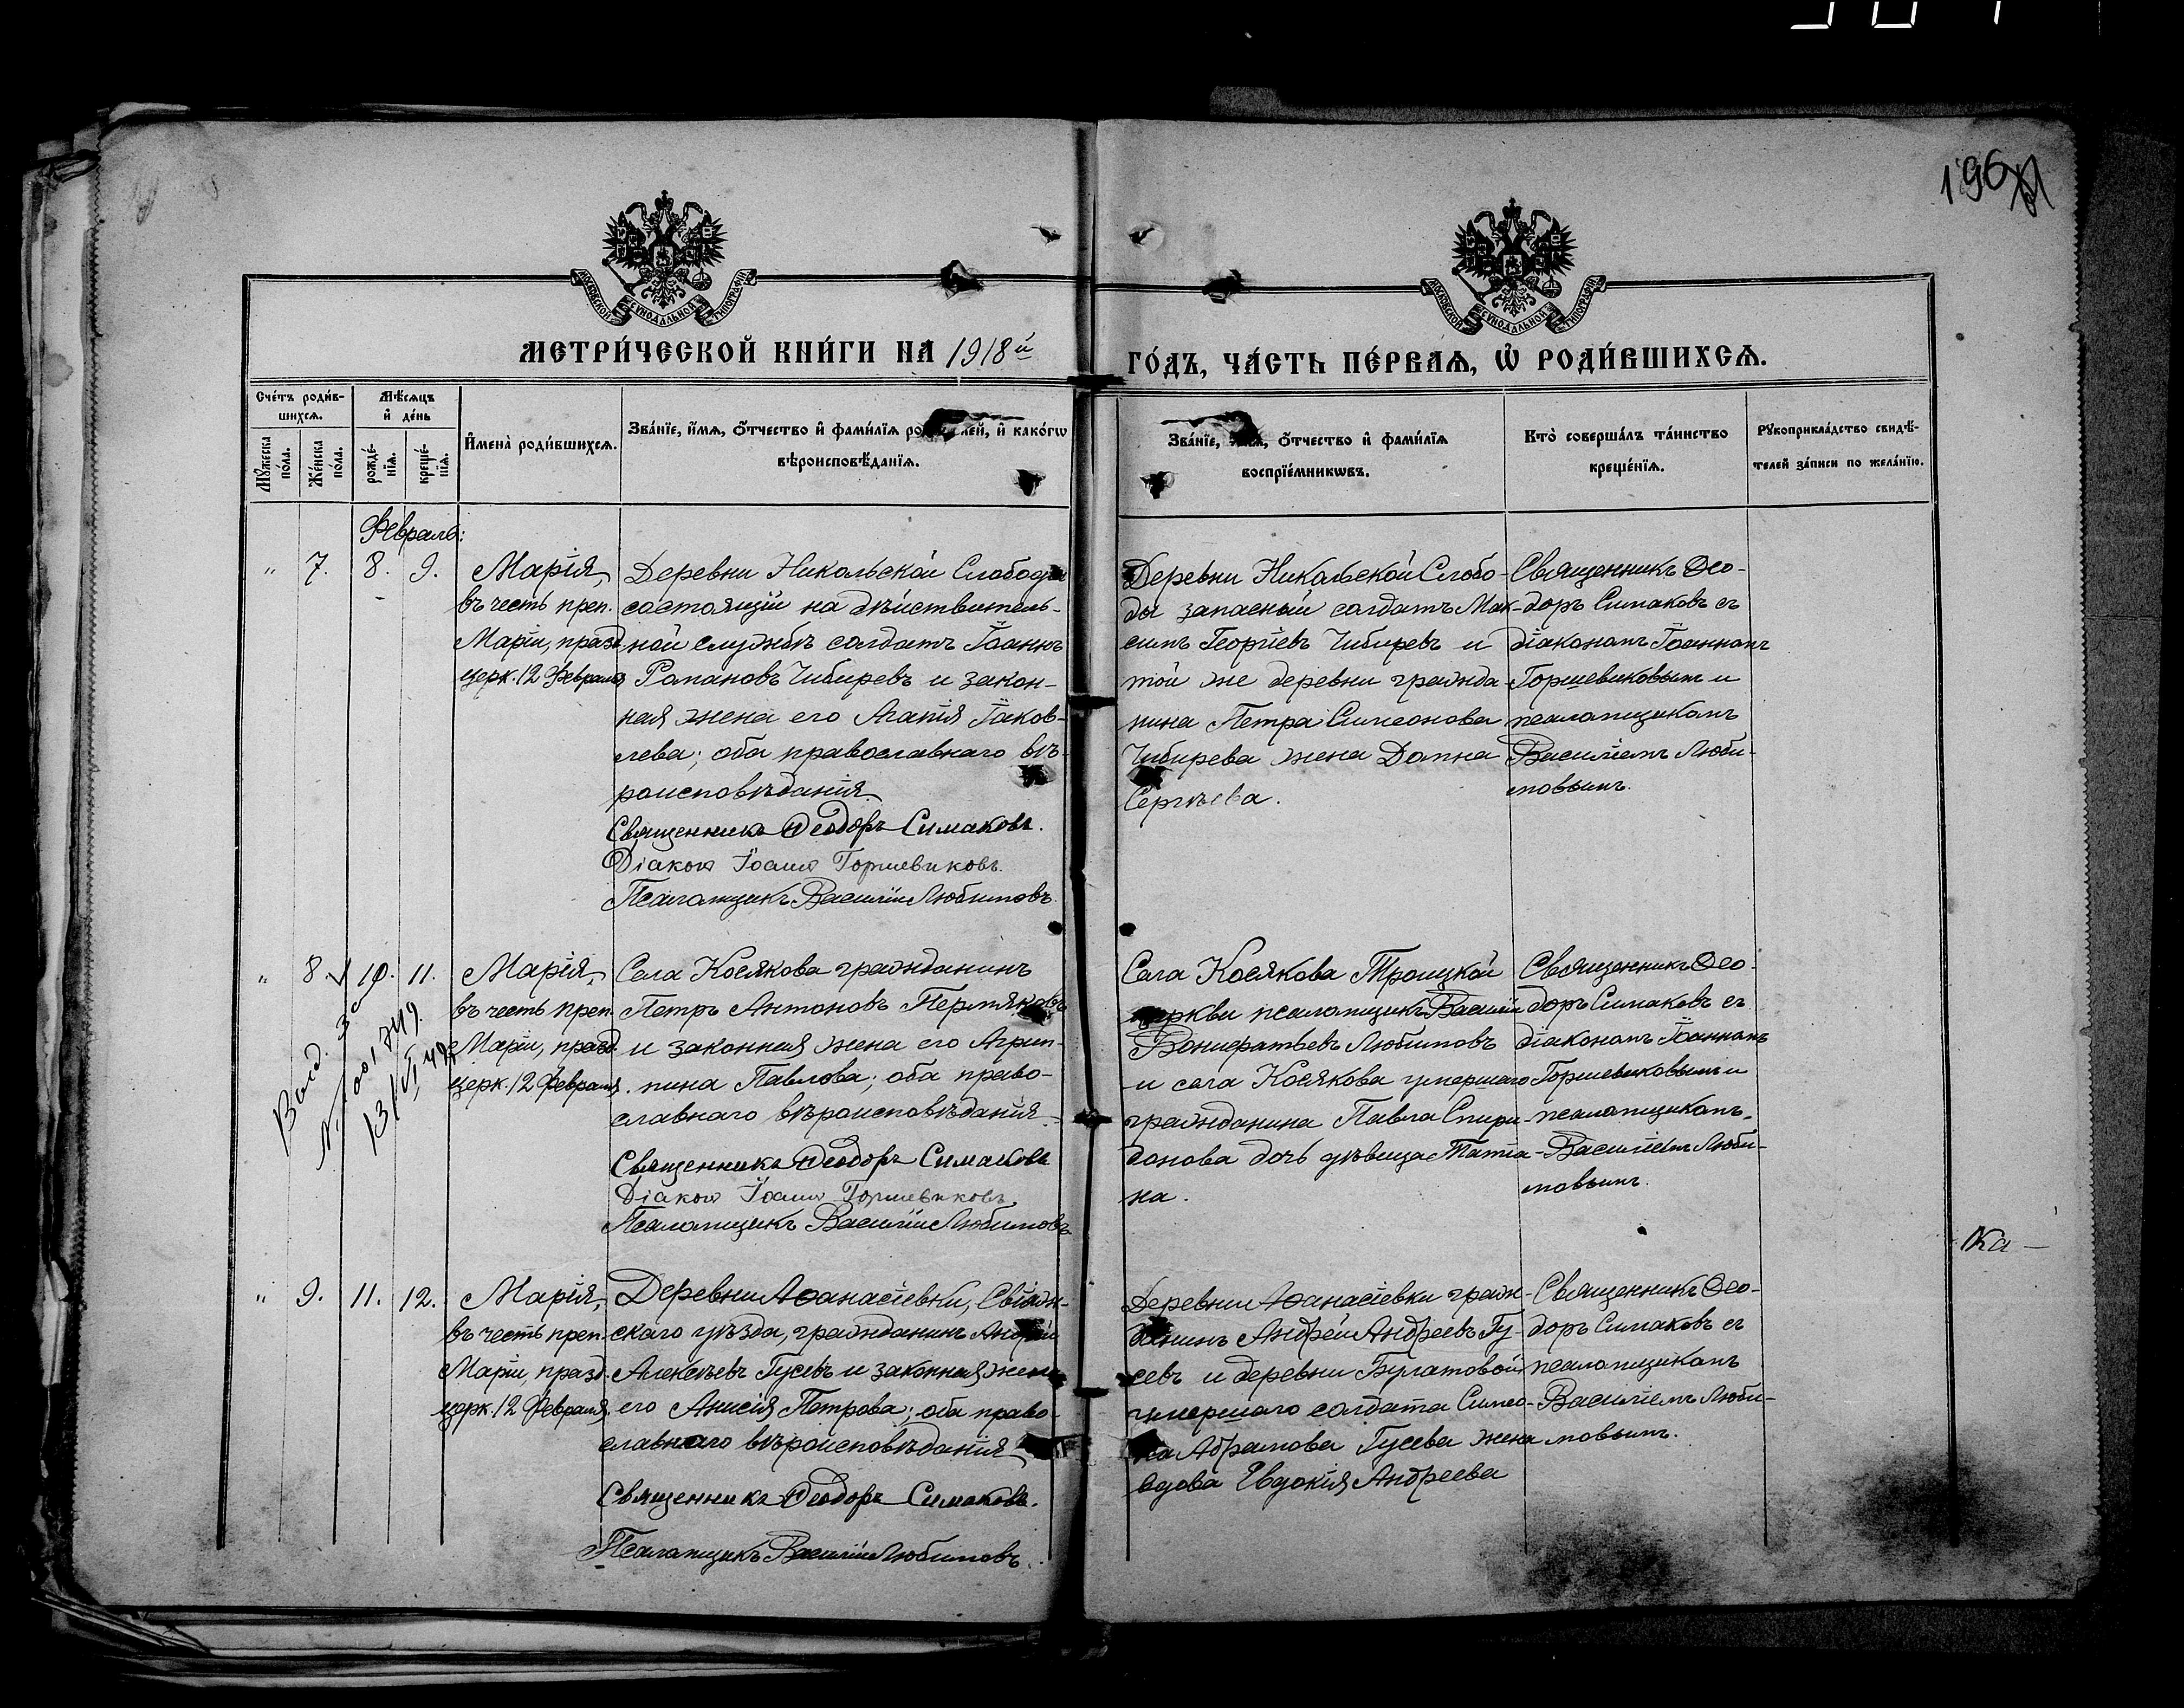 196
МОСКОВСКОЙ СѴНОДАЛЬНОЙ ТИПОГРАФІИ
МОСКОВСКОЙ СѴНОДАЛЬНОЙ ТИПОГРАФІИ
МЕТРИ́ЧЕСКОЙ КНИ́ГИ НА 1918й
ГО́ДЪ, ЧА́СТЬ ПЕ́РВАѦ, Ѽ РОДИ́ВШИХСѦ.
Сче́тъ роди́в-
шихсѧ.
Мꙋ́жеска по́ла.
Же́нска по́ла.
Мѣ́сѧцъ
и҆ де́нь
рожде́-нїѧ.
креще́-нїѧ.
И҆мена̀ роди́вшихсѧ.
Зва́нїе, и҆́мѧ, ѻ҆́тчество и҆ фамѝлїѧ родителей, и҆ како́гѡ
вѣроисповѣ́данїѧ.
Зва́нїе, и҆́мѧ, ѻ҆́тчество и҆ фами́лїѧ
воспрїе́мникѡвъ.
Кто̀ соверша́лъ та́инство
креще́нїѧ.
Рꙋкоприкла́дство свидѣ́-
телей за́писи по жела́нїю.
Февраль:
" 7. 8. 9.
Марія,
въ честь преп.
Маріи, празд.
церк. 12 Февраля
Деревни Никольской Слободы
состоящій на дѣйствитель-
ной службѣ солдатъ Іоаннъ
Романовъ Чибиревъ и закон-
ная жена его Агапія Іаков-
лева; оба православнаго вѣ-
роисповѣданія.
Священникъ Ѳеодоръ Симаковъ.
Діаконъ Іоаннъ Горшевиковъ.
Псаломщикъ Василій Любимовъ.
Деревни Никольской Слобо-
ды запасный солдатъ Мак-
симъ Георгіевъ Чибиревъ и
той же деревни гражда-
нина Петра Симеонова
Чибирева жена Домна
Сергѣева.
Священникъ Ѳео-
доръ Симаковъ съ
діакономъ Іоанномъ
Горшевиковымъ и
псаломщикомъ
Василіемъ Люби-
мовымъ.
" 8. 10. 11.
Выд. за
№ 001749.
13/VI 49
Марія,
въ честь преп.
Маріи, празд.
церк. 12 Февраля.
Села Косякова гражданинъ
Петръ Антоновъ Пермяковъ
и законная жена его Агрип-
пина Павлова; оба право-
славнаго вѣроисповѣданія.
Священникъ Ѳеодоръ Симаковъ
Діаконъ Іоаннъ Горшевиковъ.
Псаломщикъ Василій Любимовъ
Села Косякова Троицкой
церкви псаломщикъ Василій
Вонифатьевъ Любимовъ
и села Косякова умершаго
гражданина Павла Спири-
донова дочь дѣвица Татіа-
на.
Священникъ Ѳео-
доръ Симаковъ съ
діакономъ Іоанномъ
Горшевиковымъ и
псаломщикомъ
Василіемъ Люби-
мовымъ.
" 9. 11. 12.
Марія,
въ честь преп.
Маріи, празд.
церк. 12 Февраля.
Деревни Аѳанасіевки, Свіяж-
скаго уѣзда, гражданинъ Андрей
Алексѣевъ Гусевъ и законная жена
его Анисія Петрова; оба право-
славнаго вѣроисповѣданія
Священникъ Ѳеодоръ Симаковъ.
Псаломщикъ Василій Любимовъ.
Деревни Аѳанасіевки граж-
данинъ Андрей Андреевъ Гу-
севъ и деревни Булатовой
умершаго солдата Симео-
на Абрамова Гусева жена
вдова Евдокія Андреева
Священникъ Ѳео-
доръ Симаковъ съ
псаломщикомъ
Василіемъ Люби-
мовымъ.
Ка —